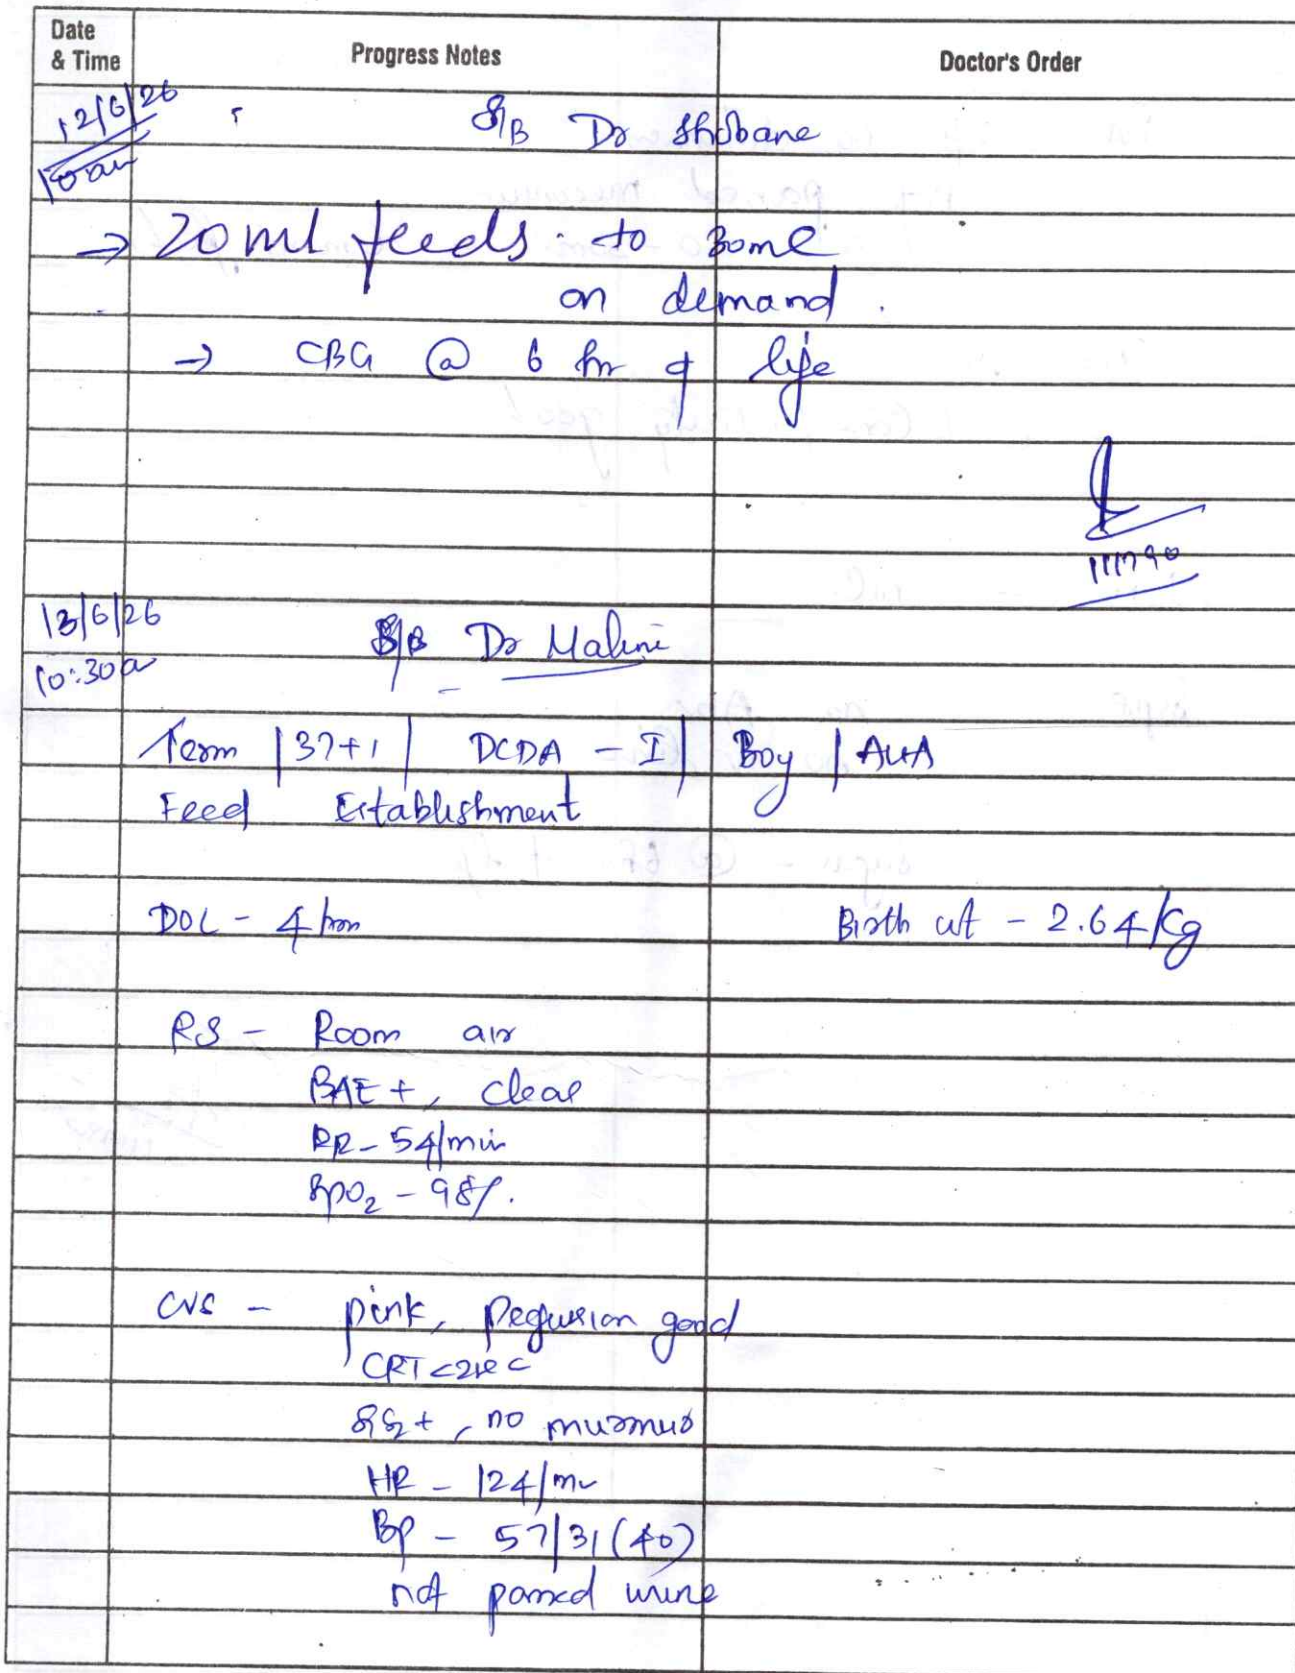 Date & Time Progress Notes Doctor's Order
12/6/26 S/B Dr Shobane
10am
→ 20ml feeds to 30ml
on demand.
→ CBG @ 6 hr of life
111790
13/6/26
10:30a S/B Dr Malini
Term | 37+1 | DCDA - I | Boy | AGA
Feed Establishment
DOL - 4 hrs Birth wt - 2.64/Kg
RS - Room air
BAE +, clear
RR - 54/min
SpO2 - 98%.
CVS - pink, perfusion good
CRT <2sec
S1S2 +, no murmur
HR - 124/m
BP - 57/31 (40)
not passed urine